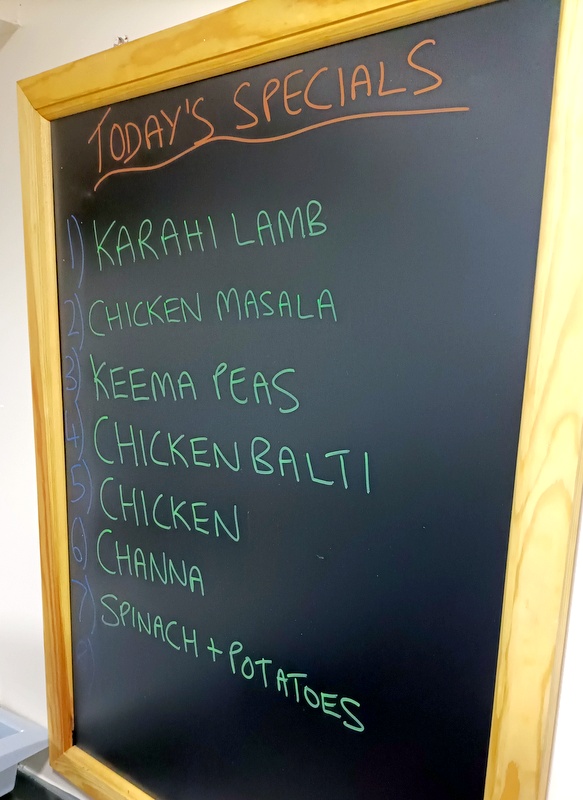 TODAY'S SPECIALS
1) KARAHI LAMB
2) CHICKEN MASALA
3) KEEMA PEAS
4) CHICKEN BALTI
5) CHICKEN
6) CHANNA
7) SPINACH + POTATOES